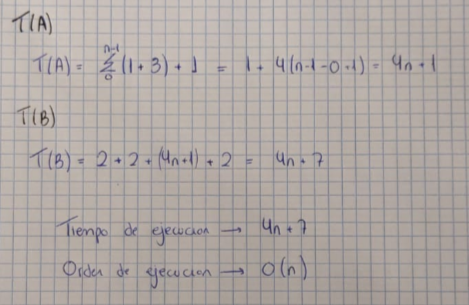 T(A)
T(A) = n-1 Σ 0 (1+3) + 1 = 1 + 4(n-1-0+1) = 4n+1
T(B)
T(B) = 2 + 2 + (4n+1) + 2 = 4n+7
Tiempo de ejecucion → 4n+7
Orden de ejecucion → O(n)